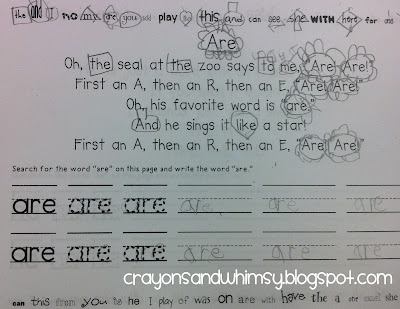 the and I no my are you said play like this and can see she WITH here for and
Are
Oh, the seal at the zoo says to me, "Are Are!"
First an A, then an R, then an E, "Are Are!"
Oh, his favorite word is "are."
And he sings it like a star!
First an A, then an R, then an E, "Are Are!"
Search for the word "are" on this page and write the word "are."
are are are are are are
are are are are are are
crayonsandwhimsy.blogspot.com
can this from you is he I play of was on are with have the a she said she